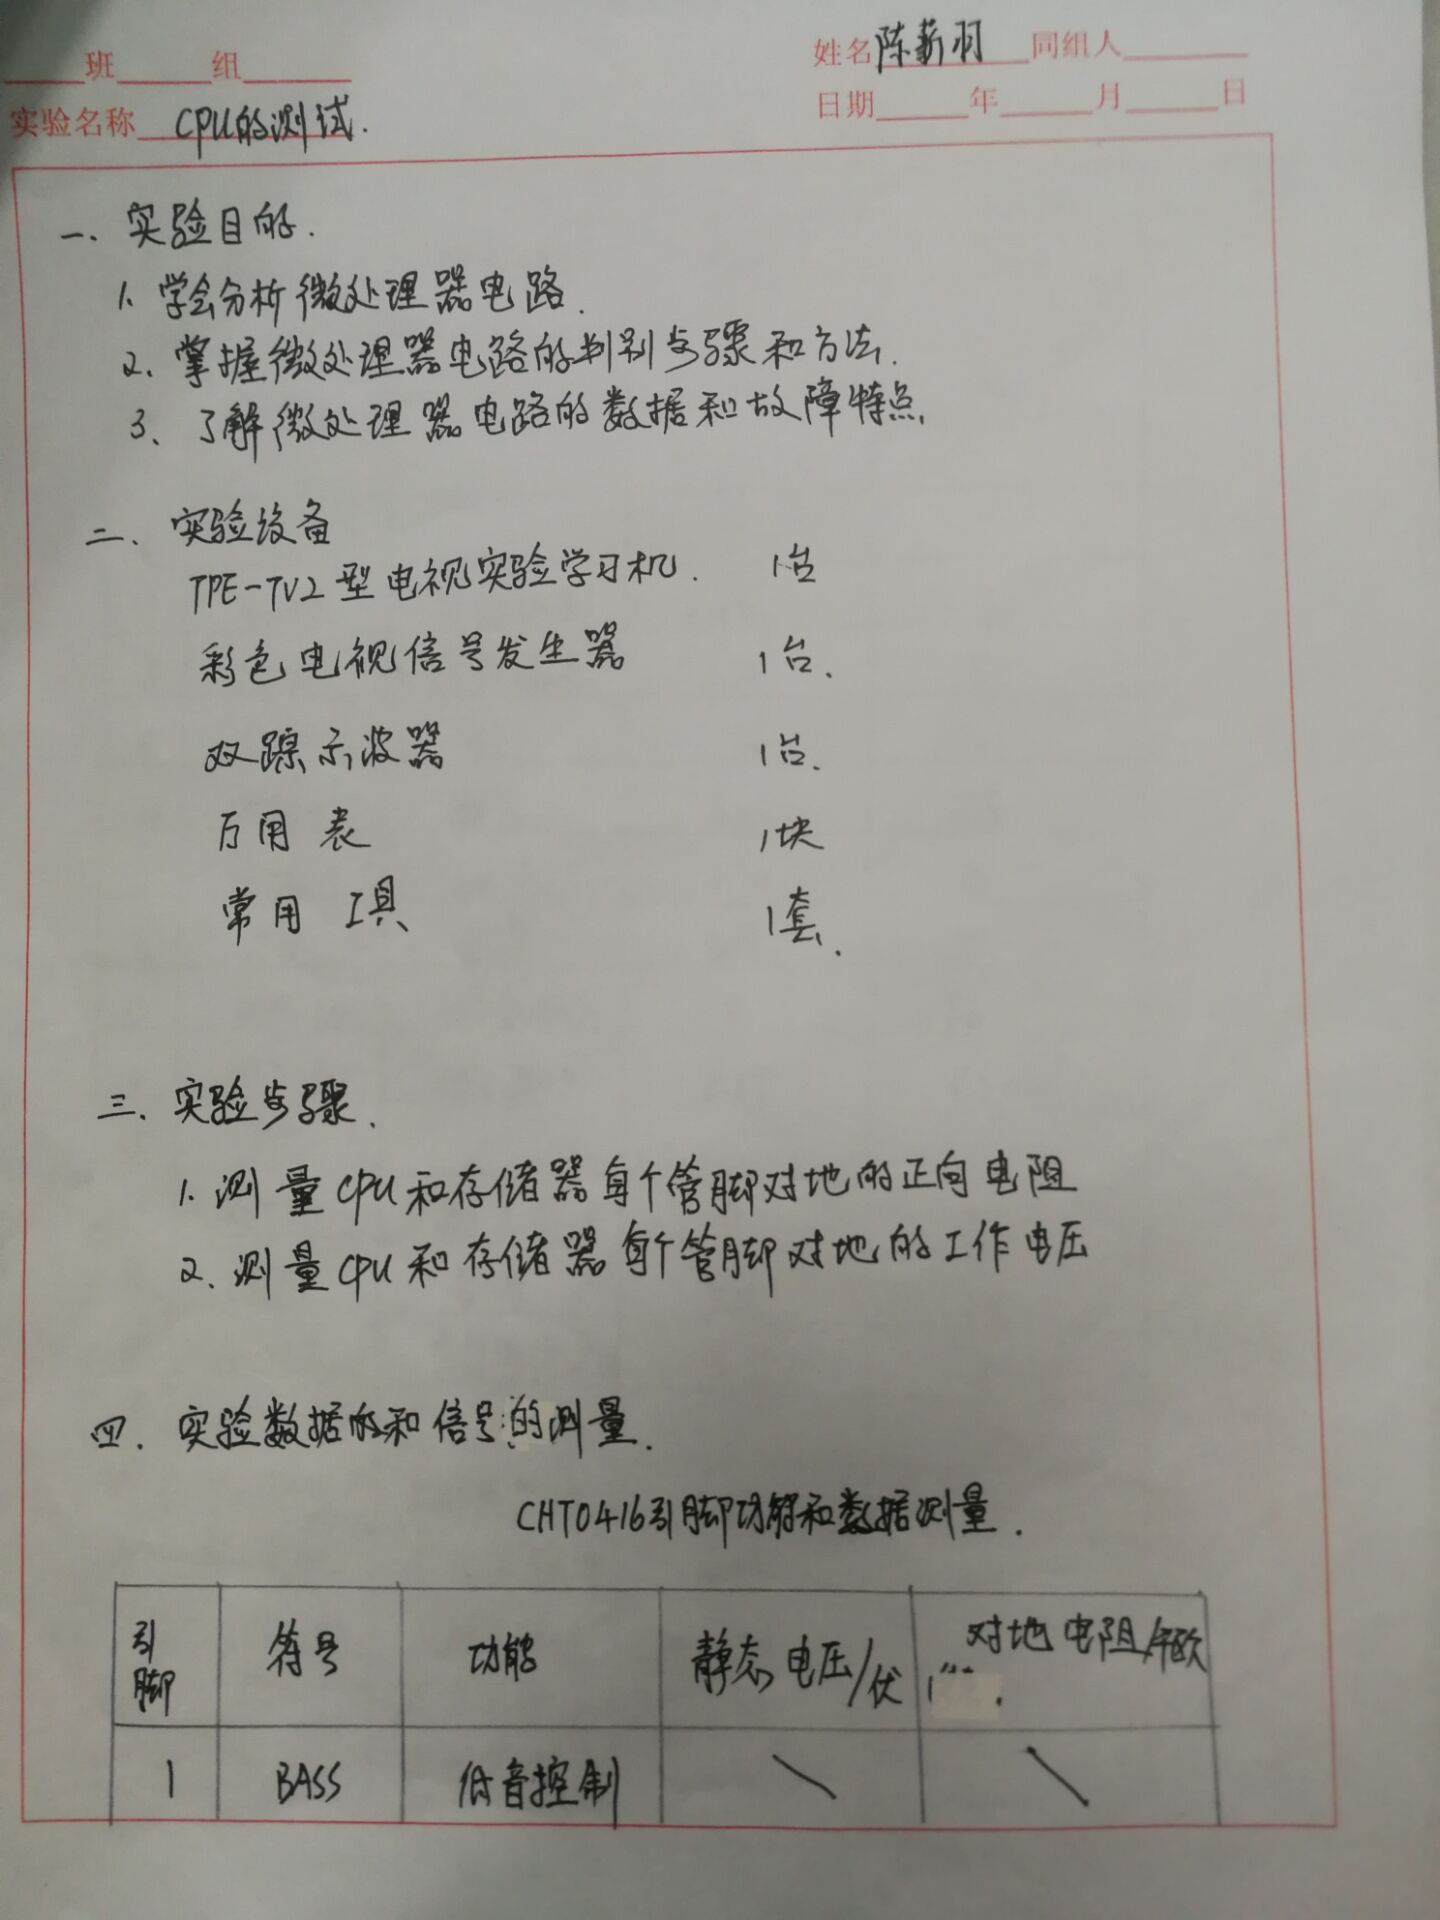 班 组
姓名 陈薪羽 同组人
实验名称 CPU的测试.
日期 年 月 日
一、实验目的.
1. 学会分析微处理器电路.
2、掌握微处理器电路的判别步骤和方法.
3、了解微处理器电路的数据和故障特点.
二、实验设备
TPE-TV2型电视实验学习机. 1台
彩色电视信号发生器 1台.
双踪示波器 1台.
万用表 1块
常用工具 1套.
三、实验步骤.
1. 测量CPU和存储器每个管脚对地的正向电阻
2. 测量CPU和存储器每个管脚对地的工作电压
四、实验数据的和信号的测量.
CHT0416引脚功能和数据测量.
引脚 符号 功能 静态电压/伏 对地电阻/千欧
1 BASS 低音控制 \ \